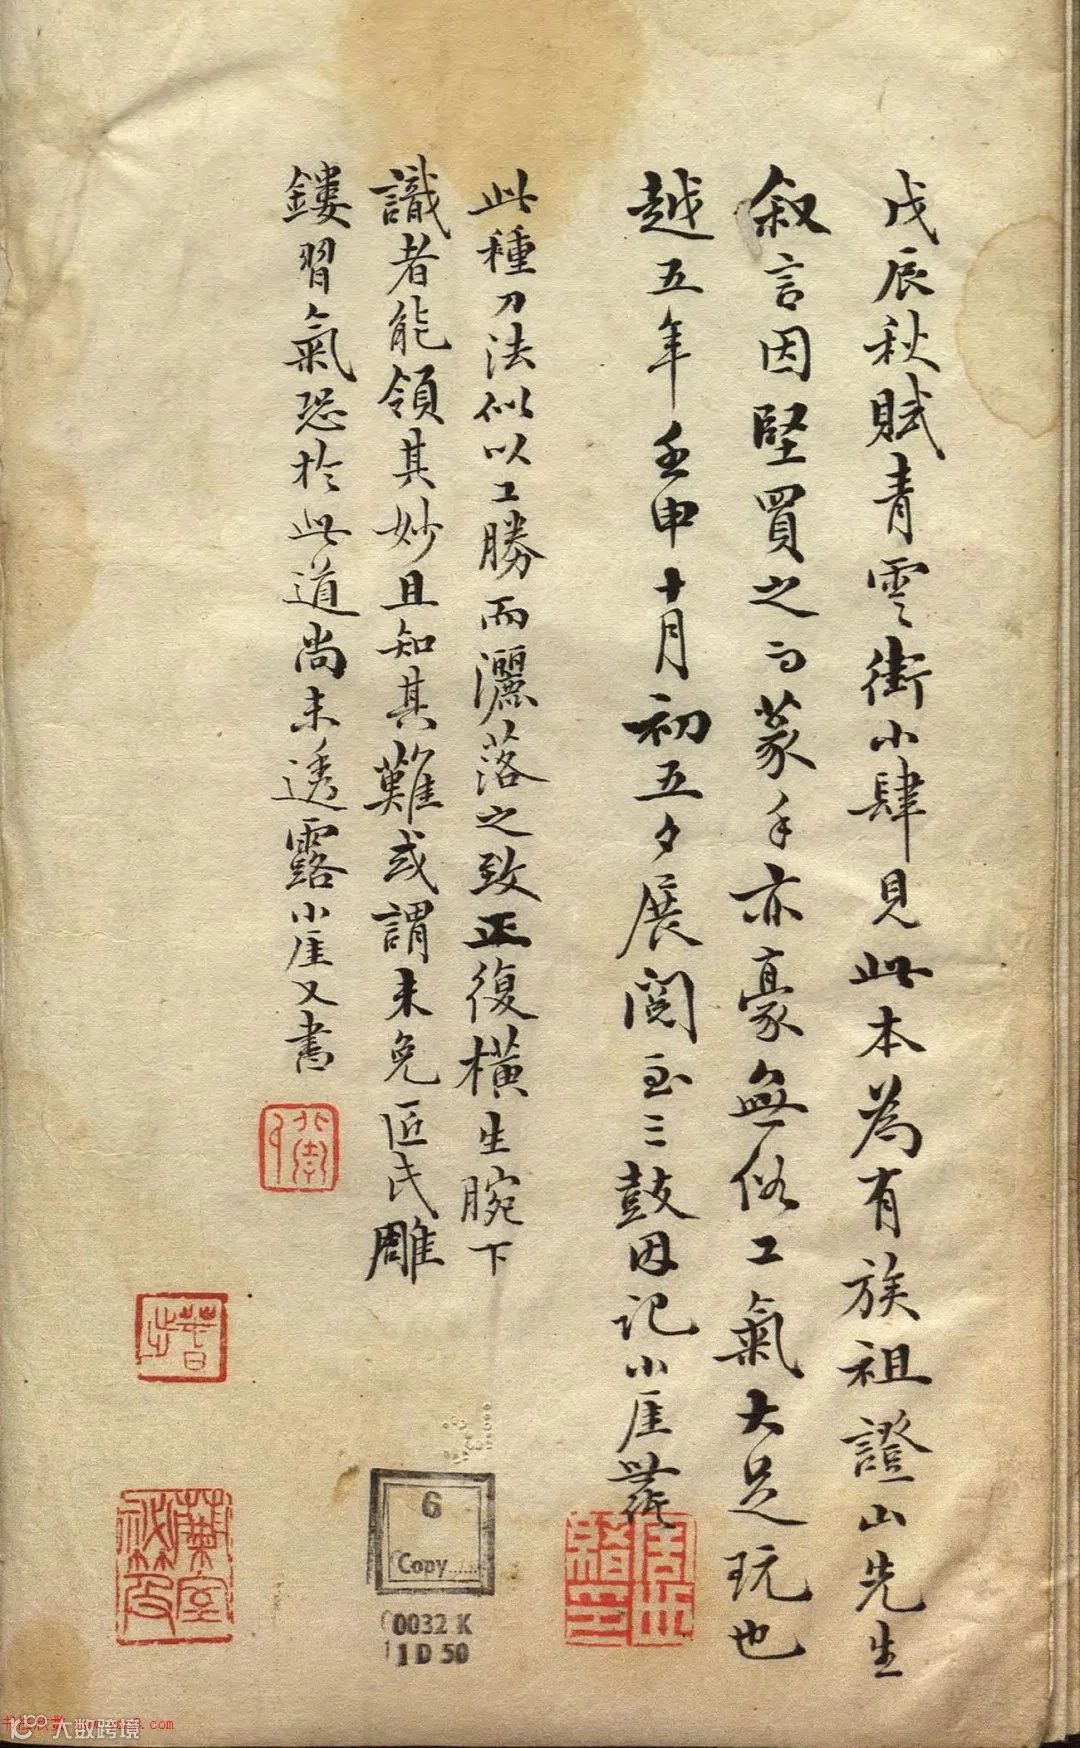 戊辰秋賦青雲街小肆見此本為有族祖證山先生
叙言因堅買之而篆手亦豪無俗工氣大足玩也
越五年壬申十月初五夕展閱至三鼓因記小厓
此種刀法似以工勝而灑落之致正復橫生腕下
識者能領其妙且知其難或謂未免匠氏雕
鏤習氣恐於此道尚未透露小厓又書
6
Copy
0032 K
1 D 50
大数跨境